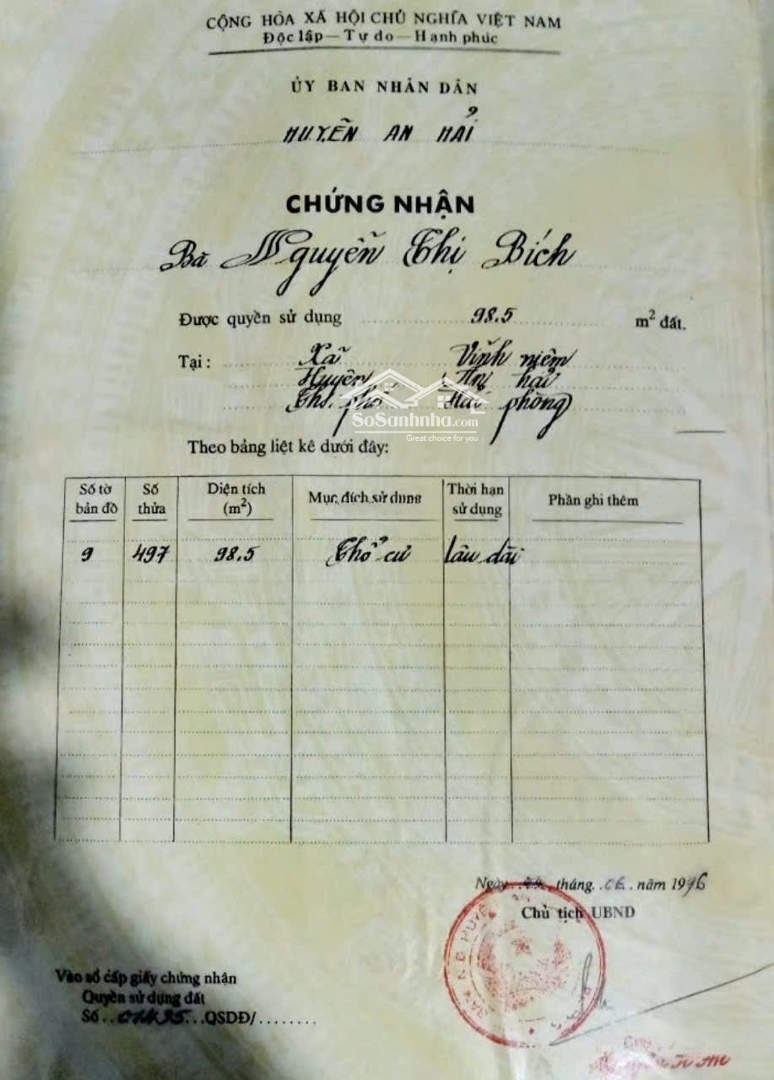 CỘNG HÒA XÃ HỘI CHỦ NGHĨA VIỆT NAM
Độc lập — Tự do — Hạnh phúc
ỦY BAN NHÂN DÂN
HUYỆN AN HẢI
CHỨNG NHẬN
Bà Nguyễn Thị Bích
Được quyền sử dụng 98.5 m² đất.
Tại : Xã Vĩnh niệm
Huyện An hải
Th. phố Hải phòng
SoSanhnha.com
Great choice for you
Theo bảng liệt kê dưới đây:
Số tờ bản đồ Số thửa Diện tích (m²) Mục đích sử dụng Thời hạn sử dụng Phần ghi thêm
9 497 98.5 Thổ cư lâu dài
Ngày tháng 06 năm 1996
Chủ tịch UBND
Vào sổ cấp giấy chứng nhận
Quyền sử dụng đất
Số 01435 QSDĐ/